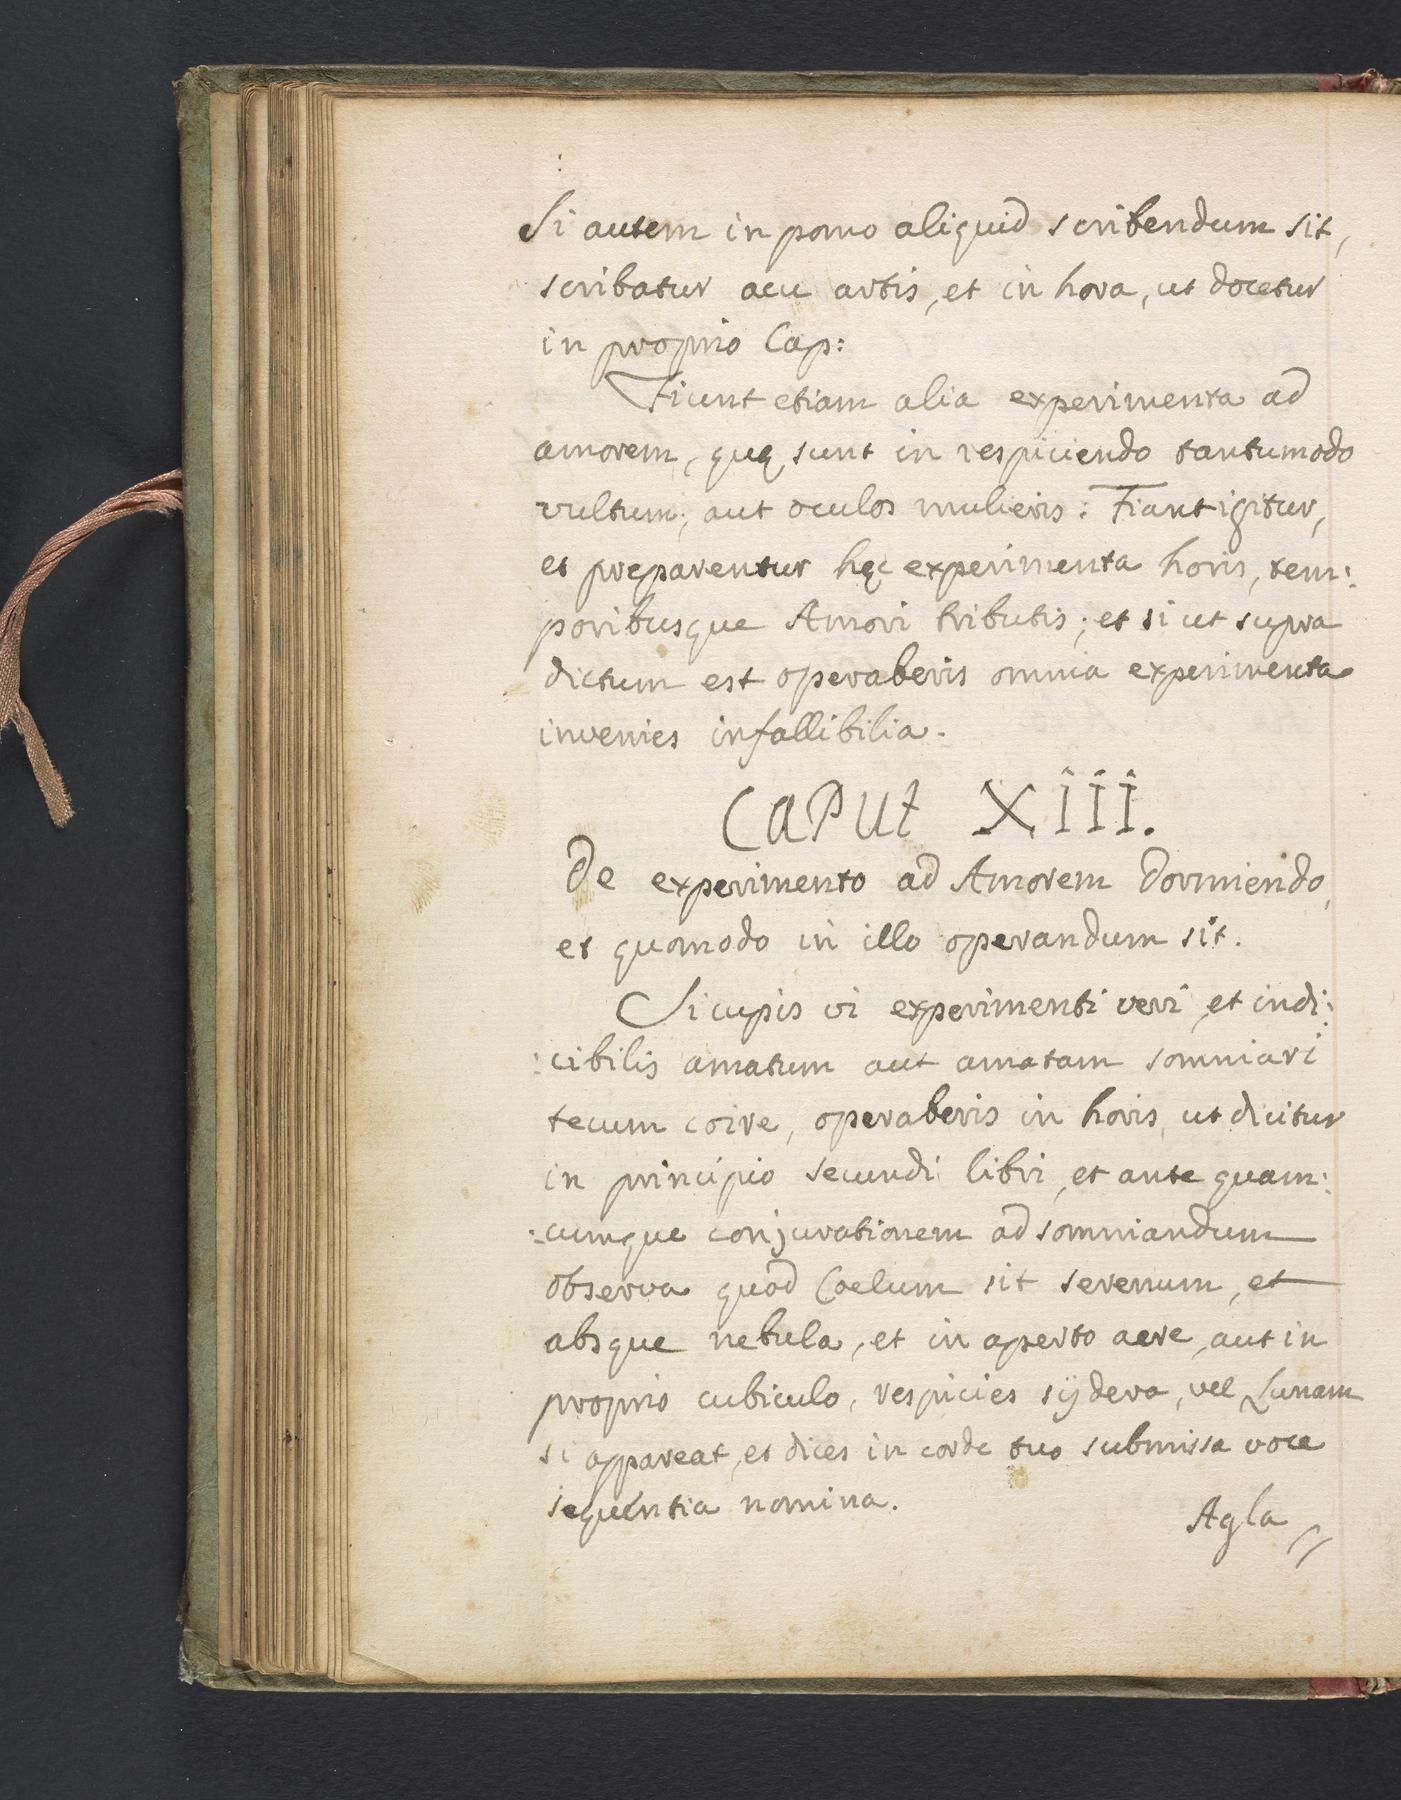 Si autem in pomo aliquid scribendum sit,
scribatur acu artis, et in hora, ut docetur
in proprio Cap:
Fiunt etiam alia experimenta ad
amorem, quę sunt in respiciendo tantumodo
vultum, aut oculos mulieris: Fiant igitur,
et preparentur hęc experimenta horis, tem:
poribusque Amori tributis; et si ut supra
dictum est operaberis omnia experimenta
invenies infallibilia.
CaPUt XIII.
De experimento ad Amorem dormiendo,
et quomodo in illo operandum sit.
Si cupis vi experimenti veri, et indi:
:cibilis amatum aut amatam somniari
tecum coire, operaberis in horis, ut dicitur
in principio secundi libri, et ante quam:
:cumque conjurationem ad somniandum
observa quod Coelum sit serenum, et
absque nebula, et in aperto aere, aut in
proprio cubiculo, respicies sÿdera, vel Lunam
si appareat, et dices in corde tuo submissa voce
sequentia nomina.
Agla